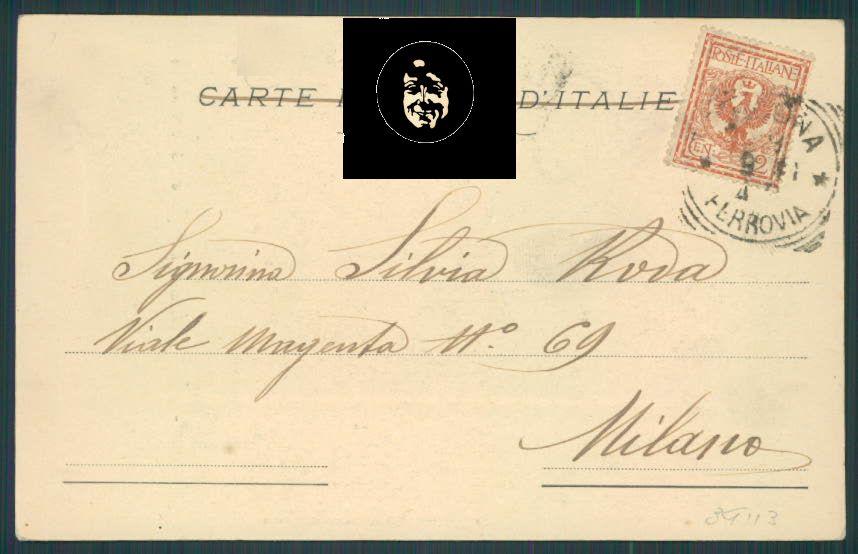 CARTE D'ITALIE
POSTE ITALIANE
CEN. 2
FERROVIA
Signorina Silvia Roda
Viale Magenta Nº 69
Milano